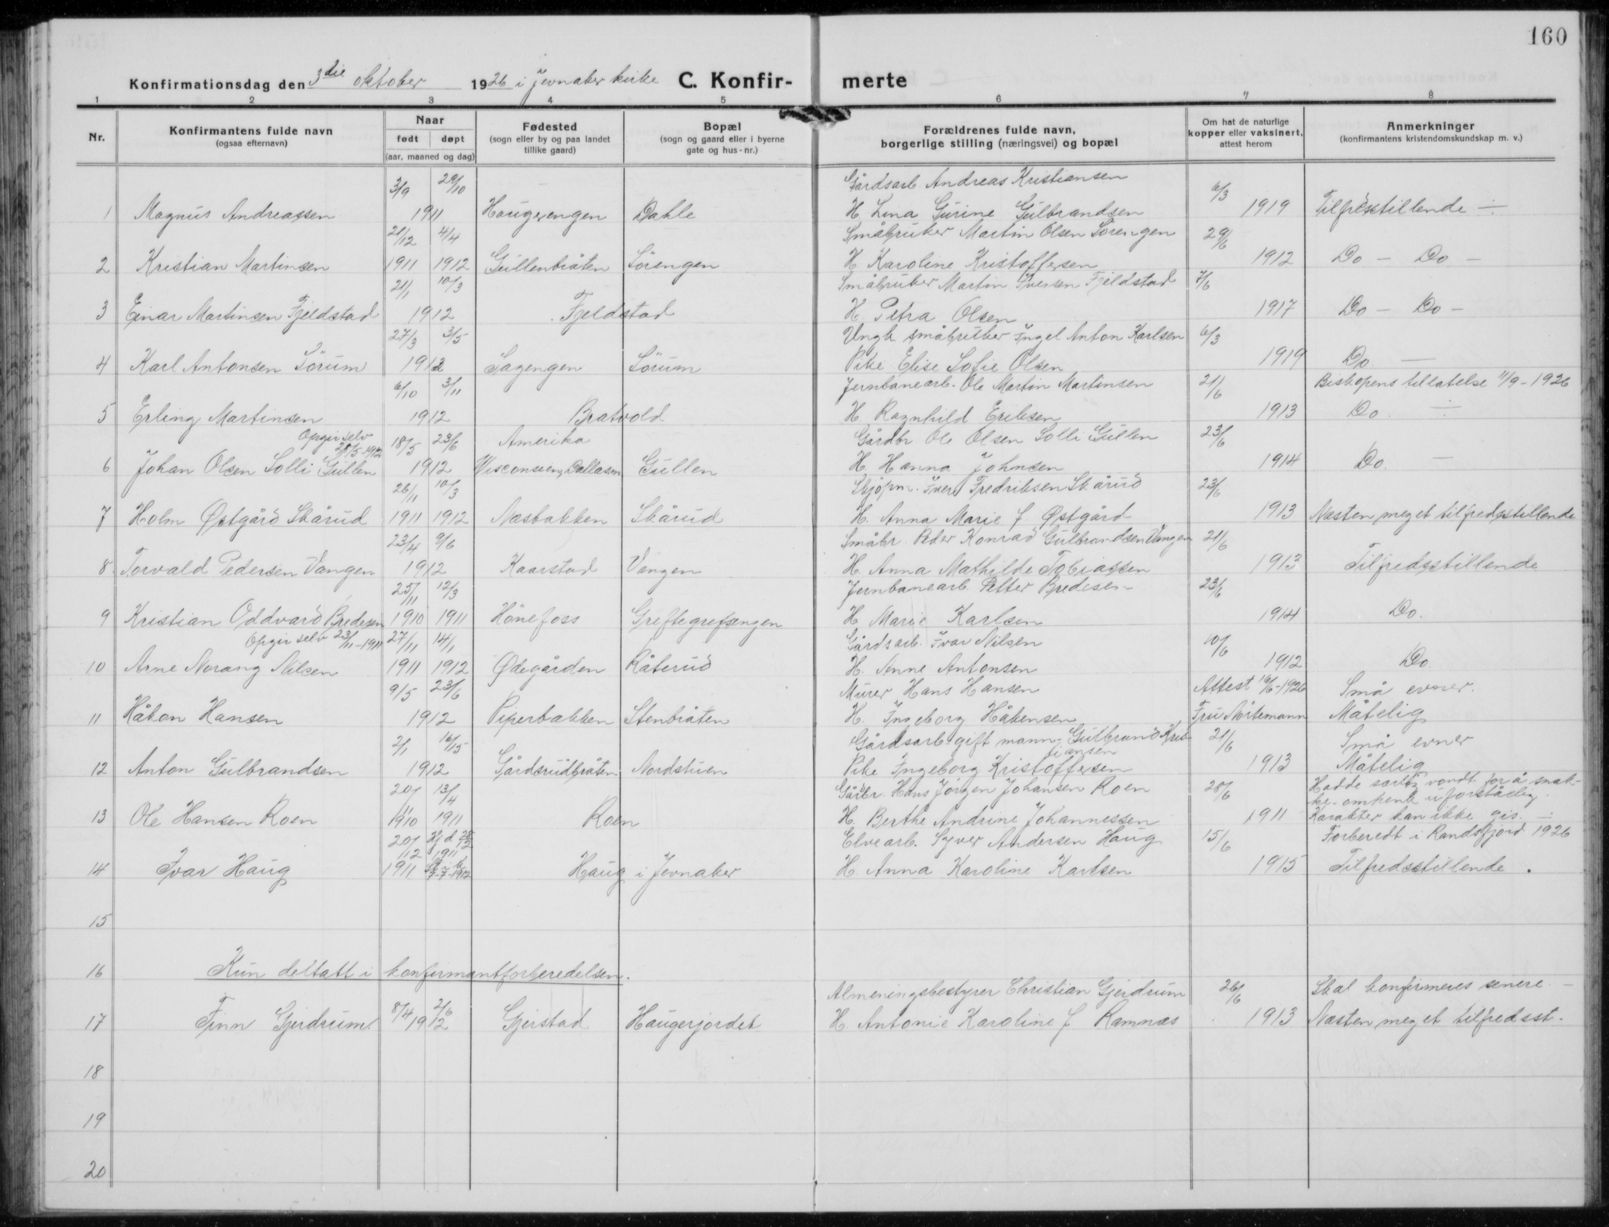 160
Konfirmationsdag den 3die oktober 1926 i Jevnaker kirke C. Konfir- merte
1 2 3 4 5 6 7 8
Nr. Konfirmantens fulde navn (ogsaa efternavn) Naar født døpt (aar, maaned og dag) Fødested (sogn eller by og paa landet tillike gaard) Bopæl (sogn og gaard eller i byerne gate og hus-nr.) Forældrenes fulde navn, borgerlige stilling (næringsvei) og bopæl Om hat de naturlige kopper eller vaksinert, attest herom Anmerkninger (konfirmantens kristendomskundskap m. v.)
3/9 29/10 Gårdsarb. Andreas Kristiansen 6/3
1 Magnus Andreassen 1911 Haugerengen Dahle H. Lina Gurine Gulbrandsen 1919 Tilfredsstillende
21/12 4/4 Småbruker Martin Olsen Sørengen 29/6
2 Kristian Martinsen 1911 1912 Gullenbråten Sørengen H. Karoline Kristoffersen 1912 Do — Do —
21/1 10/3 Småbruker Martin Iversen Fjeldstad 7/6
3 Einar Martinsen Fjeldstad 1912 Fjeldstad H. Petra Olsen 1917 Do — Do —
27/3 3/5 Ungk. småbruker Ingel Anton Karlsen 6/3
4 Karl Antonsen Sørum 1912 Sagengen Sørum Pike Elise Sofie Olsen 1919 Do —
6/10 3/11 Jernbanearb. Ole Martin Martinsen 21/6 Biskopens tillatelse 11/9-1926
5 Erling Martinsen 1912 Bratvold H. Ragnhild Eriksen 1913 Do.
Opgir selv 28/5-1912 18/5 23/6 Amerika Gårdbr. Ole Olsen Solli Gullen 23/6
6 Johan Olsen Solli Gullen 1912 Wisconsin, Dallasen Gullen H. Hanna Johnsen 1914 Do. —
26/11 10/3 Skjøpm. Iver Fredriksen Skårud 23/6
7 Holm Østgård Skårud 1911 1912 Næsbakken Skårud H. Anna Marie f Østgård 1913 Næsten meget tilfredsstillende
23/4 9/6 Småbr. Peder Konrad Gulbrandsen Vangen 21/6
8 Torvald Pedersen Vangen 1912 Kaarstad Vangen H. Anna Mathilde Tobiassen 1913 Tilfredsstillende
25/11 12/3 Jernbanearb. Petter Bredesen 23/6
9 Kristian Oddvard Bredesen 1910 1911 Hönefoss Greftegrefsengen H. Marie Karlsen 1914 Do.
Opgir selv 23/11-1911 27/11 14/1 Gårdsarb. Ivar Nilsen 10/6
10 Arne Norang Nilsen 1911 1912 Ødegården Råterud H. Anne Antonsen 1912 Do
9/5 23/6 Murer Hans Hansen Attest 16/6-1926 Små evner.
11 Håkon Hansen 1912 Piperbakken Stenbråten H. Ingeborg Håkensen Fru Mörtemann Måtelig
2/1 16/5 Gårdsarb. gift mann Gulbrand Kris- 21/6 Små evner
tiansen
12 Anton Gulbrandsen 1912 Gårdsrudbråten Nordstuen Pike Ingeborg Kristoffersen 1913 Måtelig
20/11 13/4 Gårbr. Hans Jørgen Johansen Roen 28/6 Hadde særlig vondt for å snak-
ke omtrent uforståelig.
13 Ole Hansen Roen 1910 1911 Roen H. Berthe Andrine Johannessen 1911 Karakter kan ikke gis. —
20/12 Elvearb. Syver Andersen Haug 15/6 Forberedt i Randsfjord 1926
14 Ivar Haug 1911 Haug i Jevnaker H. Anna Karoline Karlsen 1915 Tilfredsstillende.
15
16 Kun deltatt i konfirmantforberedelsen.
Almeningsbestyrer Christian Gjerdrum 26/6 Skal konfirmeres senere. —
17 Finn Gjerdrum 8/4 2/6 1912 Gjerstad Haugerjordet H. Antonie Karoline f Ramnæs 1913 Næsten meget tilfredsst.
18
19
20